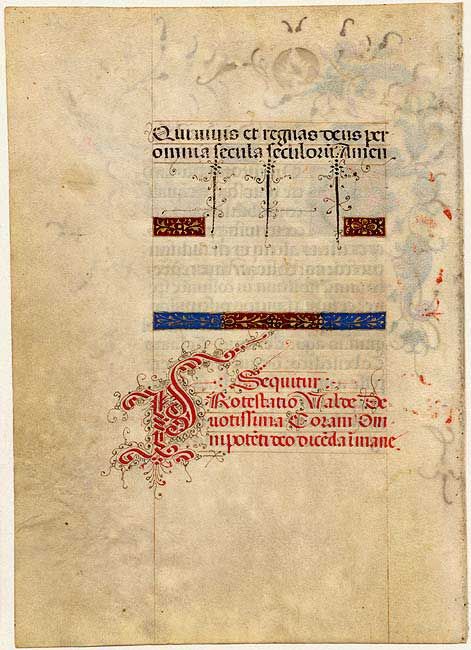 Qui uiuis et regnas deus per
omnia secula seculorū. Amen
.: Sequitur :.
PRotestatio Valde De
uotissima Coram Om
nipotēti deo dicēda i mane